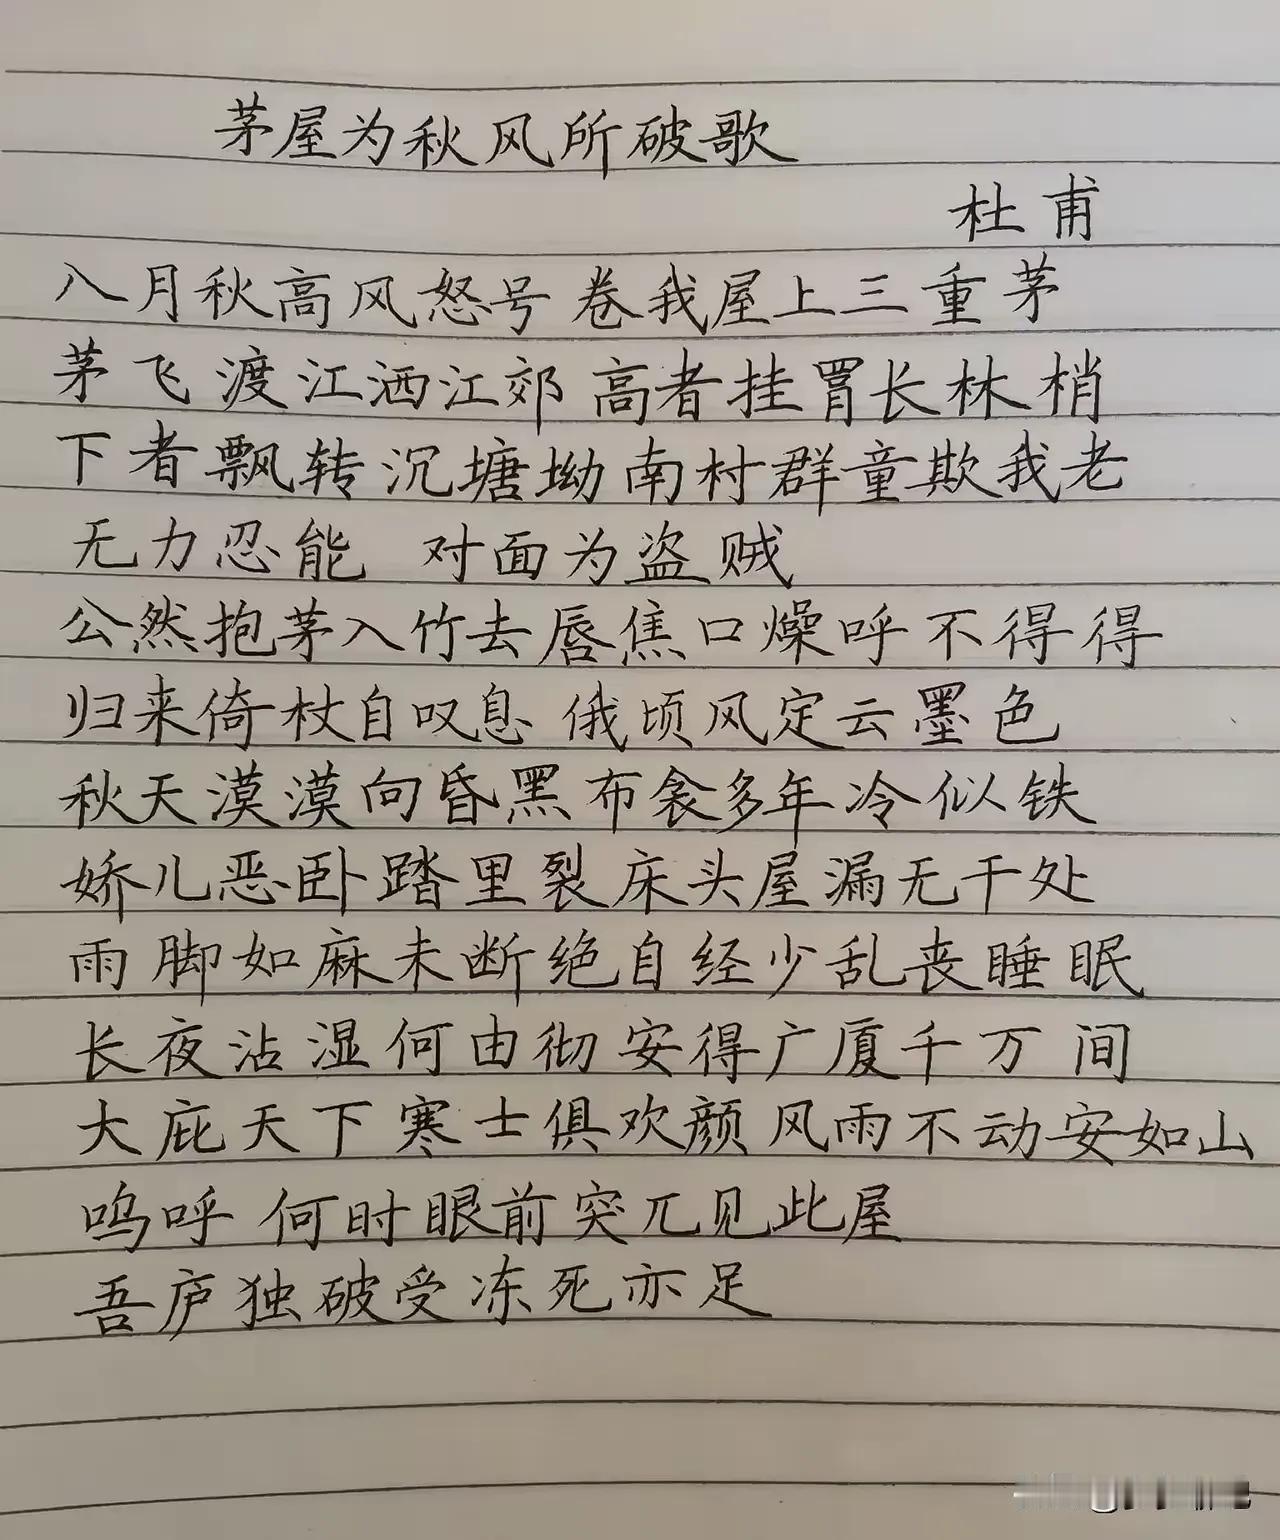 茅屋为秋风所破歌
杜甫
八月秋高风怒号 卷我屋上三重茅
茅飞渡江洒江郊 高者挂罥长林梢
下者飘转沉塘坳 南村群童欺我老
无力忍能 对面为盗贼
公然抱茅入竹去 唇焦口燥呼不得得
归来倚杖自叹息 俄顷风定云墨色
秋天漠漠向昏黑 布衾多年冷似铁
娇儿恶卧踏里裂 床头屋漏无干处
雨脚如麻未断绝 自经少乱丧睡眠
长夜沾湿何由彻 安得广厦千万间
大庇天下寒士俱欢颜 风雨不动安如山
呜呼 何时眼前突兀见此屋
吾庐独破受冻死亦足